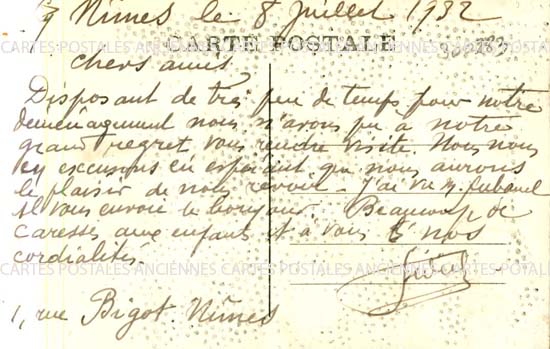 Nîmes le 8 Juillet 1932
CARTE POSTALE
chers amis,
Disposant de très peu de temps pour notre
déménagement nous n'avons pu à notre
grand regret vous rendre visite. Nous nous
en excusons en espérant que nous aurons
le plaisir de nous revoir. J'ai vu M.
Il vous envoie le bonjour. Beaucoup de
caresses aux enfants et à vous ts nos
cordialités.
CARTES POSTALES ANCIENNES CARTES POSTALES ANCIENNES CARTES POSTALES
1, rue Bigot Nîmes